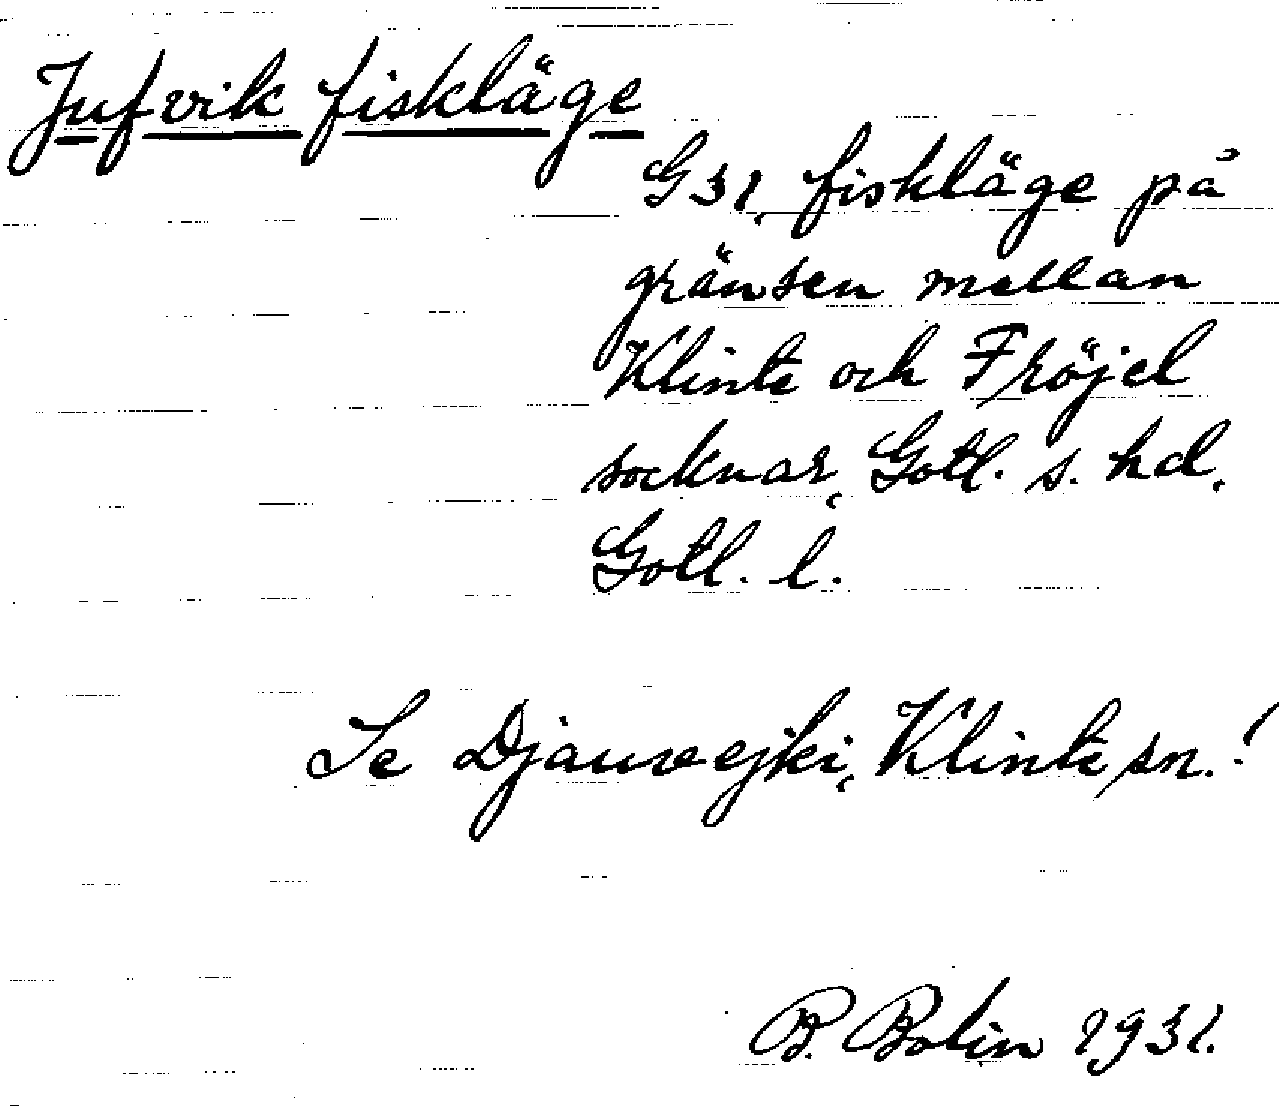 Jufvik fiskläge
G 31, fiskläge på
gränsen mellan
Klinte och Fröjel
socknar, Gotl. s. hd,
Gotl. l.
Se Djauvejki, Klinte sn.!
B. Bolin 1931.